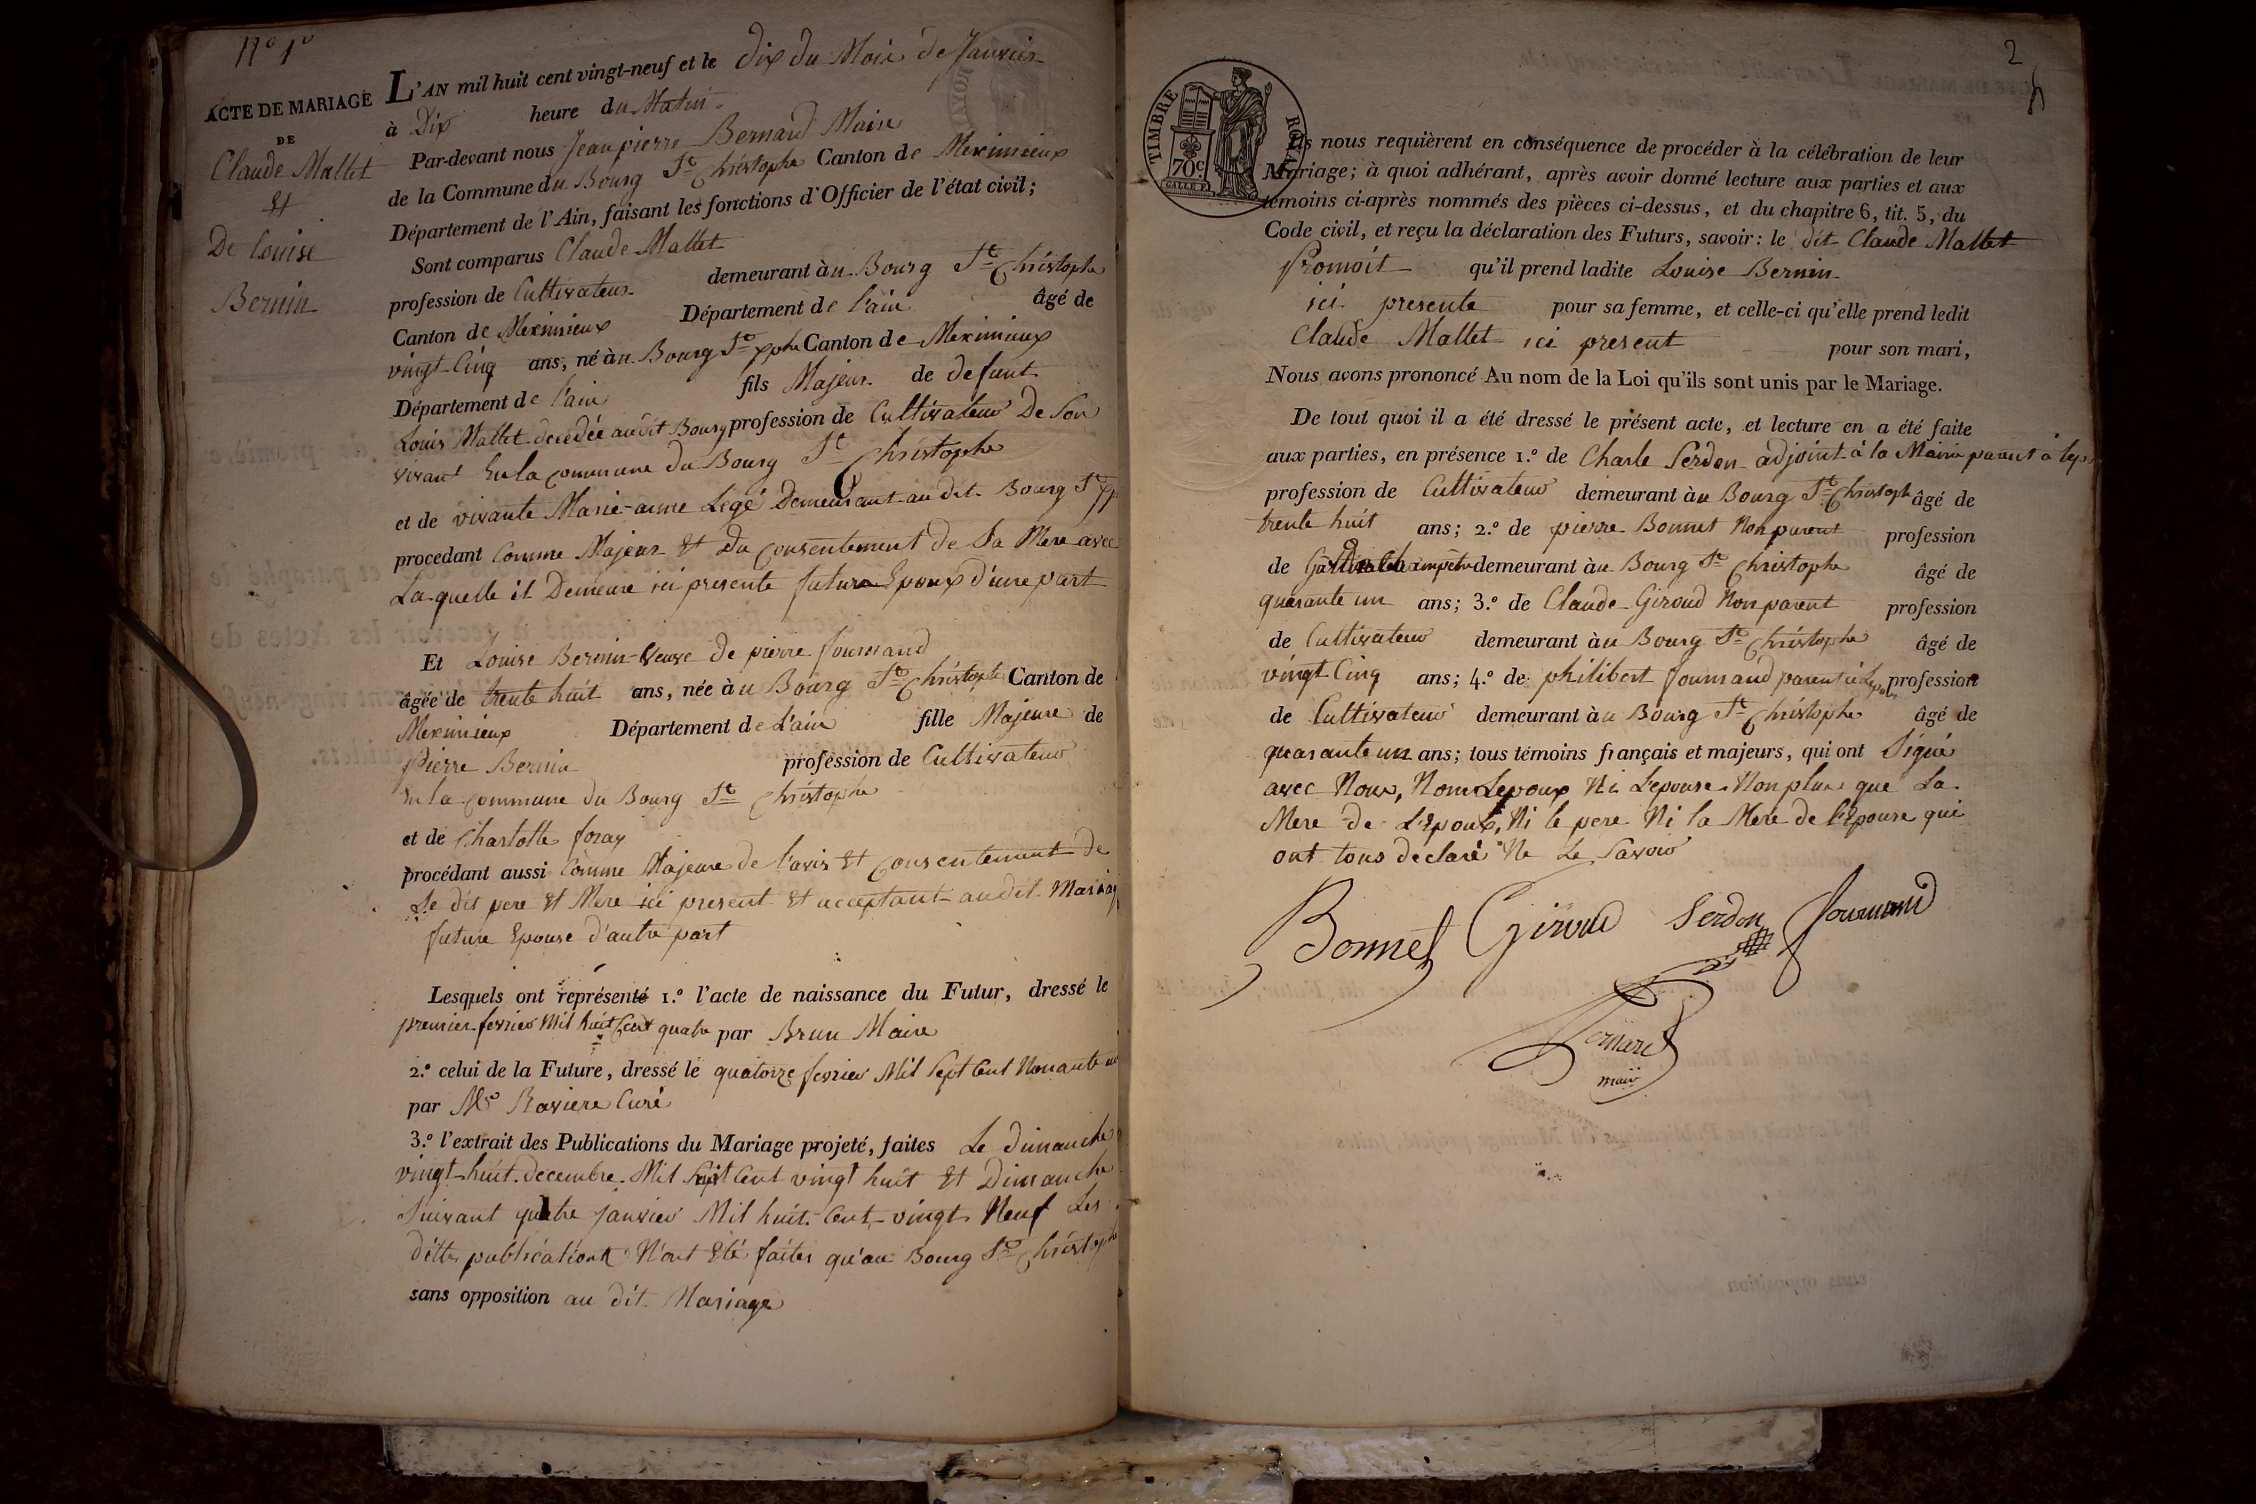 N° 1°
ACTE DE MARIAGE
DE
Claude Mallet
Et
De Louise
Bernin
L'AN mil huit cent vingt-neuf et le dix du Mois de Janvier
à Dix heure du Matin
Par-devant nous Jean pierre Bernard Maire
de la Commune du Bourg St Christophe Canton de Meximieux
Département de l'Ain, faisant les fonctions d'Officier de l'état civil;
Sont comparus Claude Mallet
profession de Cultivateur demeurant àu Bourg St Christophe
Canton de Meximieux Département de l'ain âgé de
vingt Cinq ans, né àu Bourg St Xphe Canton de Meximieux
Département de l'ain fils Majeur de defunt
Louis Mallet decedée audit Bourg profession de Cultivateur De Son
vivant En la commune du Bourg St Christophe
et de vivante Marie-anne Legé Demeurant au dit Bourg St
procedant Comme Majeur Et Du Consentement de Sa Mere avec
Laquelle il Demeure ici presente futur Epoux d'une part
Et Louise Bernin Veuve De pierre fournand
âgée de trente huit ans, née àu Bourg St Christophe Canton de
Meximieux Département de L'ain fille Majeure de
Pierre Bernin profession de Cultivateur
En la commune du Bourg St Christophe
et de Charlotte foray
procédant aussi Comme Majeure de l'avis Et Consentement de
Se dit pere Et Mere ici present Et acceptant audit Mariag
future Epouse d'autre part
Lesquels ont représenté 1.º l'acte de naissance du Futur, dressé le
premier fevrier Mil huit Cent quatre par Brun Maire
2.º celui de la Future, dressé le quatorze fevrier Mil Sept Cent Nonante un
par Mr Raviere Curé
3.º l'extrait des Publications du Mariage projeté, faites Le dimanche
vingt-huit decembre Mil huit Cent vingt huit Et Dimanche
Suivant quatre janvier Mil huit Cent vingt Neuf Les
dittes publications N'ont Eté faites qu'au Bourg St Christophe
sans opposition au dit Mariage
2
TIMBRE ROYAL
70c
Ils nous requièrent en conséquence de procéder à la célébration de leur
Mariage; à quoi adhérant, après avoir donné lecture aux parties et aux
témoins ci-après nommés des pièces ci-dessus, et du chapitre 6, tit. 5, du
Code civil, et reçu la déclaration des Futurs, savoir: le dit Claude Mallet
Promoit qu'il prend ladite Louise Bernin
ici presente pour sa femme, et celle-ci qu'elle prend ledit
Claude Mallet ici present pour son mari,
Nous avons prononcé Au nom de la Loi qu'ils sont unis par le Mariage.
De tout quoi il a été dressé le présent acte, et lecture en a été faite
aux parties, en présence 1.º de Charle Serdon adjoint à la Mairie parent à
profession de Cultivateur demeurant àu Bourg St Christoph âgé de
trente huit ans; 2.º de pierre Bonnet Non parent profession
de demeurant àu Bourg St Christophe âgé de
quarante un ans; 3.º de Claude Giroud Non parent profession
de Cultivateur demeurant àu Bourg St Christophe âgé de
vingt Cinq ans; 4.º de philibert fournand parent profession
de Cultivateur demeurant àu Bourg St Christophe âgé de
quarante un ans; tous témoins français et majeurs, qui ont Signé
avec Nous, Non Lepoux Ni L'epouse Non plus que La
Mere de L'Epoux, Ni le pere Ni la Mere de l'Epouse qui
ont tous declaré Ne Le Savoir
Bonnet Giroud Serdon fournand
Bernard
maire